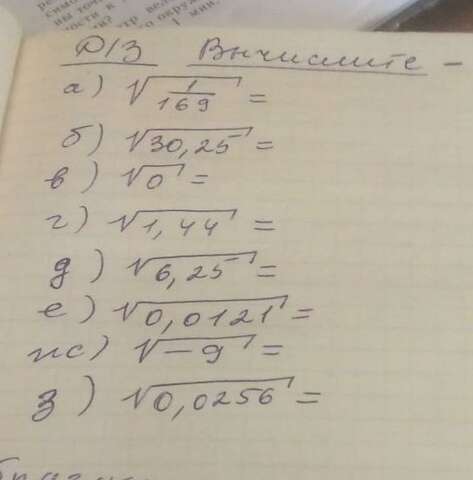 Д/З Вычислите -
а) √1/169 =
б) √30,25 =
в) √0 =
г) √1,44 =
д) √6,25 =
е) √0,0121 =
ж) √-9 =
з) √0,0256 =